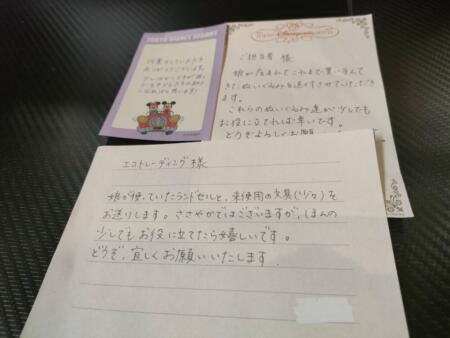 TOKYO DISNEY RESORT
ありがとうございます。
ご担当者 様
娘が産まれてこれまで買い与えて
きたぬいぐるみを送付させていただき
ます。
これらのぬいぐるみ達が少しでも
お役に立てれば幸いです。
どうぞよろしくお願い
エコトレーディング様
娘が使っていたランドセルと、未使用の文具(少々)を
お送りします。ささやかではございますが、ほんの
少しでもお役に立てたら嬉しいです。
どうぞ、宜しくお願いいたします